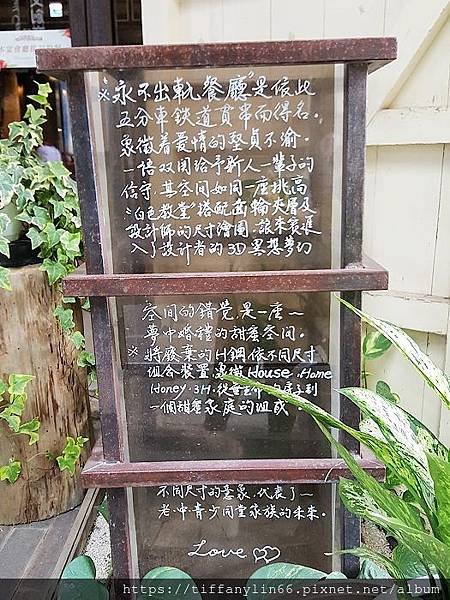 ※"永不出軌餐廳"是依此
五分車鉄道貫串而得名。
象徵着愛情的堅貞不渝。
一語双関给予新人一輩子的
信守,其空间如同一座挑高
"白色教堂"搭配齿輪夾層及
設計師的尺寸繪圖,
入了設計者的3D冥想夢幻
空间的錯覺是一座~
夢中婚禮的甜蜜空间。
※將廢棄的H鋼依不同尺寸
组合裝置 House.Home
Honey.3H.從 房子到
一個甜蜜家庭的组成。
不同尺寸的意象,代表了~
老中青少同堂家族的未來。
Love
https://tiffanylin66.pixnet.net/album